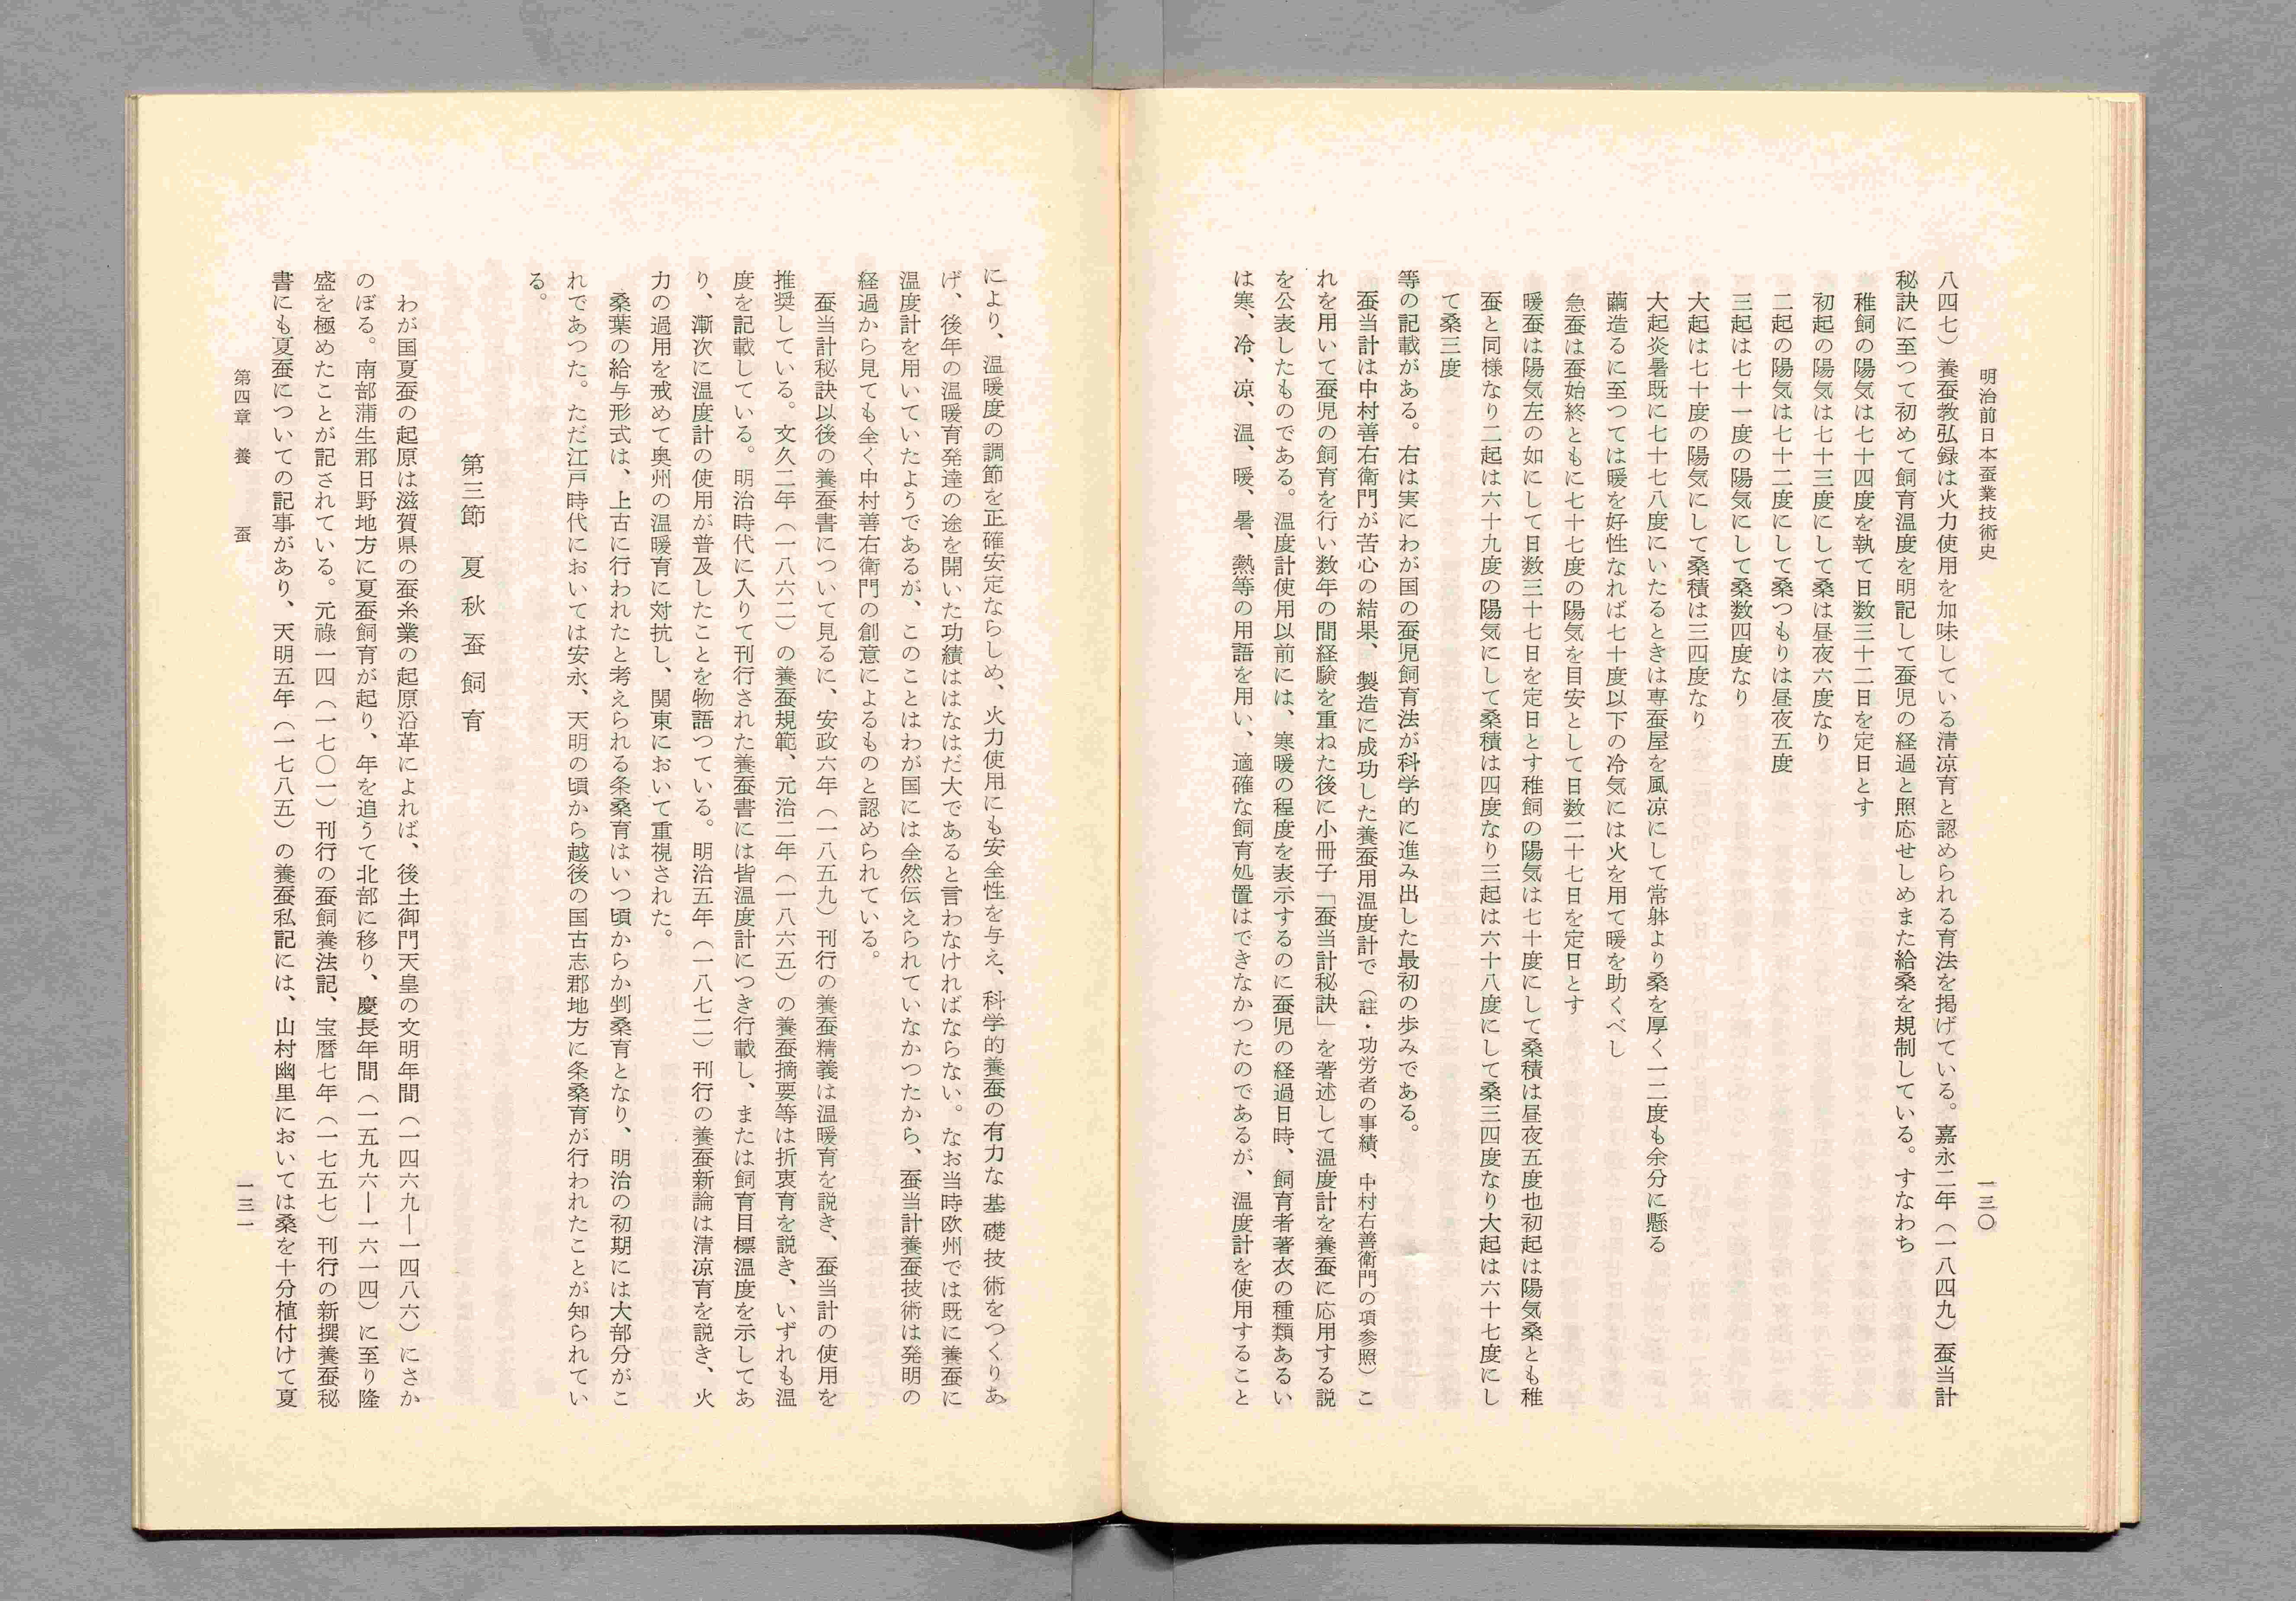 明治前日本蚕業技術史
一三〇
八四七）養蚕教弘録は火力使用を加味している清涼育と認められる育法を掲げている。嘉永二年（一八四九）蚕当計
秘訣に至つて初めて飼育温度を明記して蚕児の経過と照応せしめまた給桑を規制している。すなわち
稚飼の陽気は七十四度を執て日数三十二日を定日とす
初起の陽気は七十三度にして桑は昼夜六度なり
二起の陽気は七十二度にして桑つもりは昼夜五度
三起は七十一度の陽気にして桑数四度なり
大起は七十度の陽気にして桑積は三四度なり
大起炎暑既に七十七八度にいたるときは専蚕屋を風凉にして常躰より桑を厚く一二度も余分に懸る
繭造るに至つては暖を好性なれば七十度以下の冷気には火を用て暖を助くべし
急蚕は蚕始終ともに七十七度の陽気を目安として日数二十七日を定日とす
暖蚕は陽気左の如にして日数三十七日を定日とす稚飼の陽気は七十度にして桑積は昼夜五度也初起は陽気桑とも稚
蚕と同様なり二起は六十九度の陽気にして桑積は四度なり三起は六十八度にして桑三四度なり大起は六十七度にし
て桑三度
等の記載がある。右は実にわが国の蚕児飼育法が科学的に進み出した最初の歩みである。
蚕当計は中村善右衛門が苦心の結果、製造に成功した養蚕用温度計で（註・功労者の事績、中村右善衛門の項参照）こ
れを用いて蚕児の飼育を行い数年の間経験を重ねた後に小冊子「蚕当計秘訣」を著述して温度計を養蚕に応用する説
を公表したものである。温度計使用以前には、寒暖の程度を表示するのに蚕児の経過日時、飼育者著衣の種類あるい
は寒、冷、凉、温、暖、暑、熱等の用語を用い、適確な飼育処置はできなかつたのであるが、温度計を使用すること
により、温暖度の調節を正確安定ならしめ、火力使用にも安全性を与え、科学的養蚕の有力な基礎技術をつくりあ
げ、後年の温暖育発達の途を開いた功績ははなはだ大であると言わなければならない。なお当時欧州では既に養蚕に
温度計を用いていたようであるが、このことはわが国には全然伝えられていなかつたから、蚕当計養蚕技術は発明の
経過から見ても全く中村善右衛門の創意によるものと認められている。
蚕当計秘訣以後の養蚕書について見るに、安政六年（一八五九）刊行の養蚕精義は温暖育を説き、蚕当計の使用を
推奨している。文久二年（一八六二）の養蚕規範、元治二年（一八六五）の養蚕摘要等は折衷育を説き、いずれも温
度を記載している。明治時代に入りて刊行された養蚕書には皆温度計につき行載し、または飼育目標温度を示してあ
り、漸次に温度計の使用が普及したことを物語つている。明治五年（一八七二）刊行の養蚕新論は清凉育を説き、火
力の過用を戒めて奥州の温暖育に対抗し、関東において重視された。
桑葉の給与形式は、上古に行われたと考えられる条桑育はいつ頃からか剉桑育となり、明治の初期には大部分がこ
れであつた。ただ江戸時代においては安永、天明の頃から越後の国古志郡地方に条桑育が行われたことが知られてい
る。
第三節　夏秋蚕飼育
わが国夏蚕の起原は滋賀県の蚕糸業の起原沿革によれば、後土御門天皇の文明年間（一四六九―一四八六）にさか
のぼる。南部蒲生郡日野地方に夏蚕飼育が起り、年を追うて北部に移り、慶長年間（一五九六―一六一四）に至り隆
盛を極めたことが記されている。元祿一四（一七〇一）刊行の蚕飼養法記、宝暦七年（一七五七）刊行の新撰養蚕秘
書にも夏蚕についての記事があり、天明五年（一七八五）の養蚕私記には、山村幽里においては桑を十分植付けて夏
第四章　養蚕
一三一